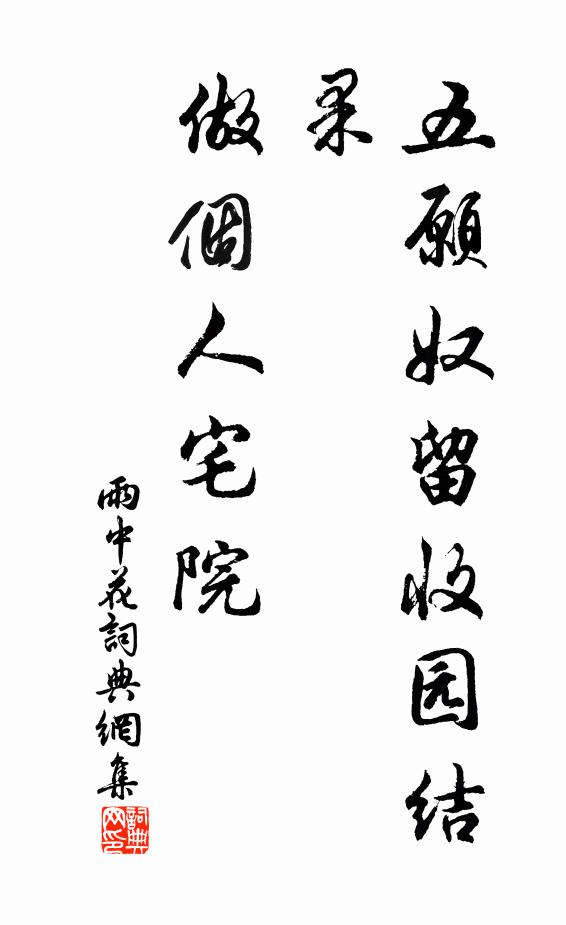 五願奴留收园结
果
做個人宅院
雨中花詞典網集
詞典
网印